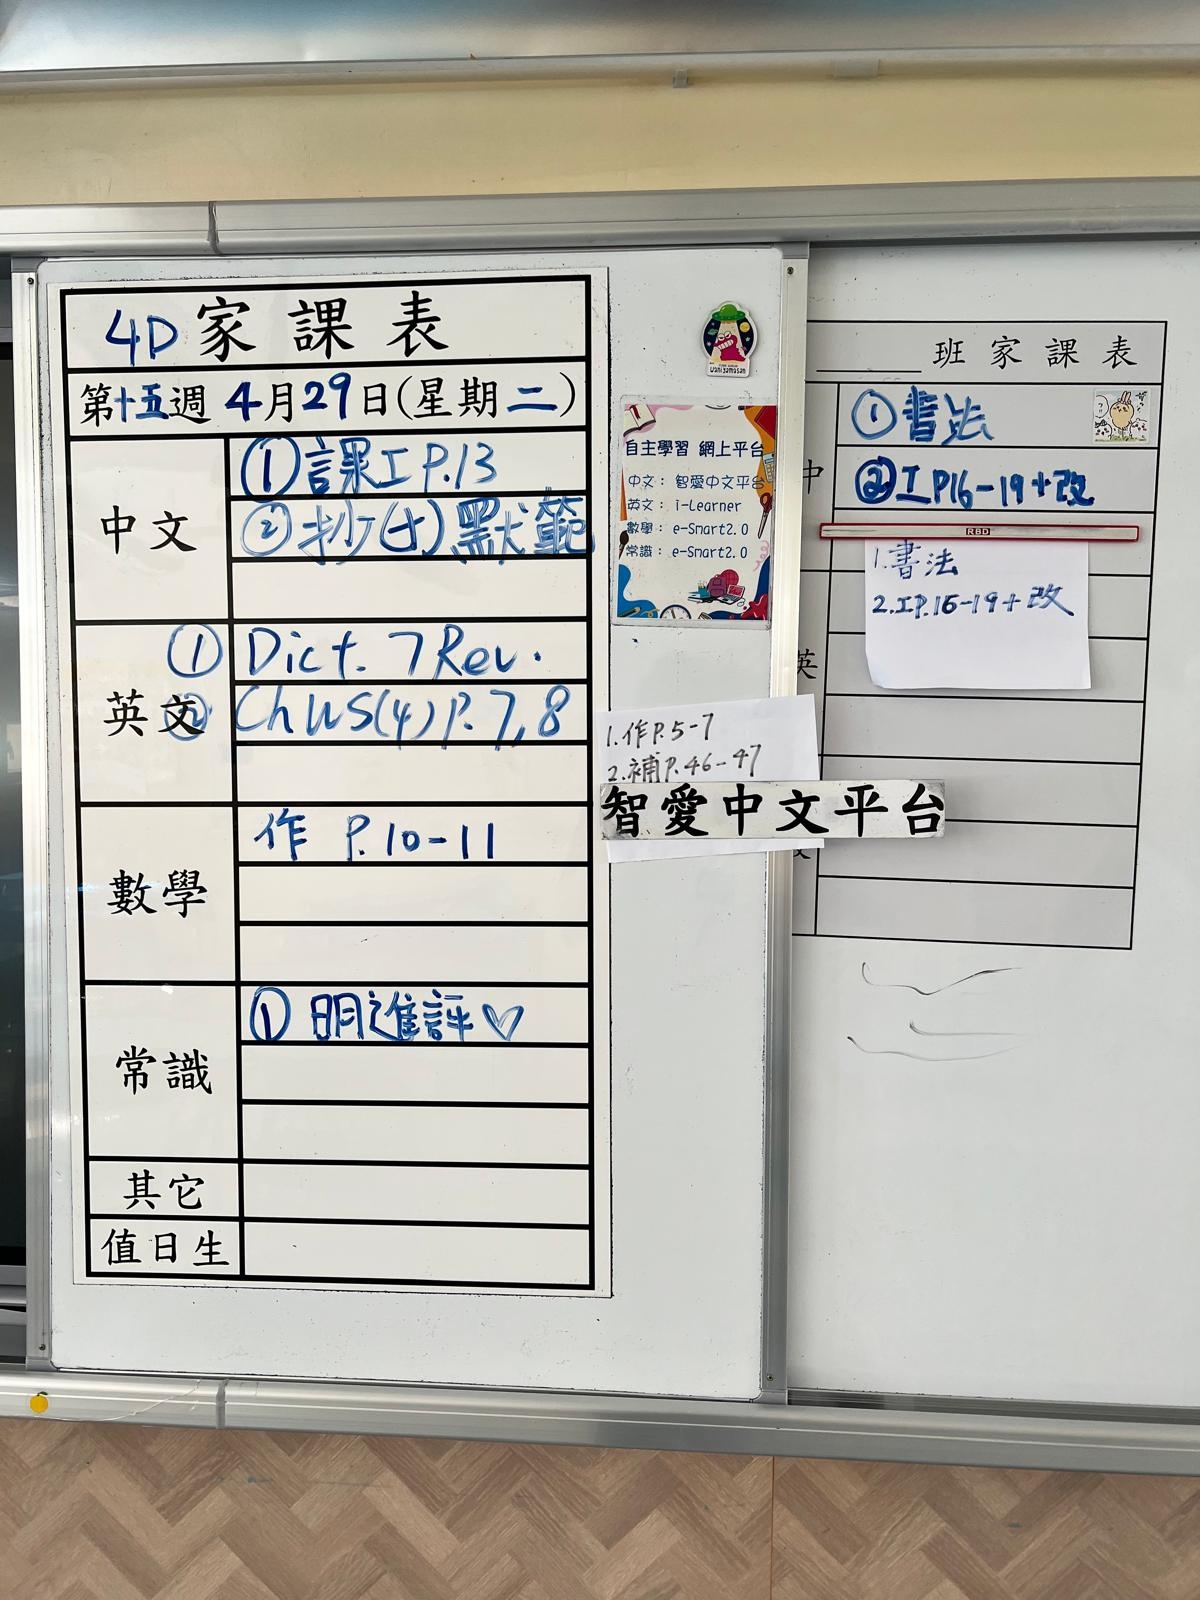 4D家課表
第十五週 4月29日(星期二)
中文
①課工P.13
②抄(七)默範
英文
① Dict. 7 Rev.
② Ch WS(4) P. 7,8
數學
作 P.10-11
常識
① 明進評♡
其它
值日生
WaniYamaSan
自主學習 網上平台
中文: 智愛中文平台
英文: i-Learner
數學: e-Smart2.0
常識: e-Smart2.0
1.作P.5-7
2.補P.46-47
智愛中文平台
班家課表
中
①書法
②工P16-19+改
RBD
1.書法
2.工P.16-19+改
英